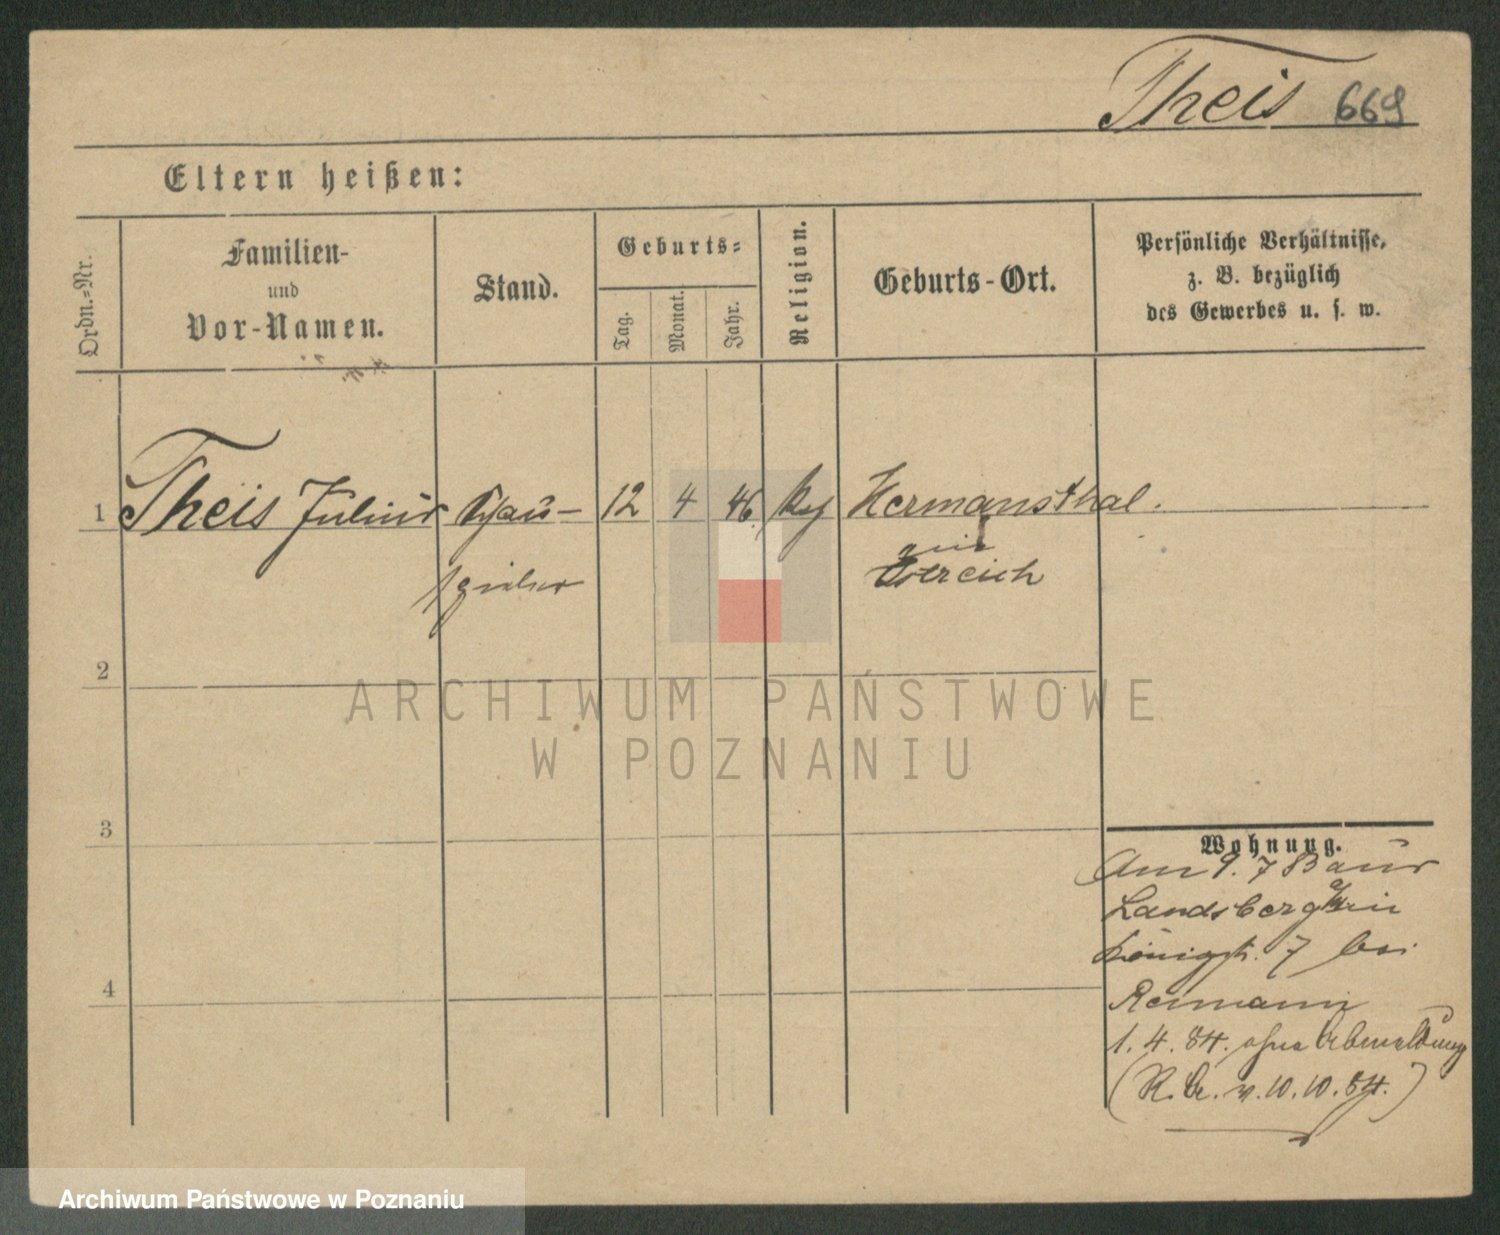 Theis 669
Eltern heißen:
Ordn.-Nr.
Familien-
und
Vor-Namen.
Stand.
Geburts-
Tag.
Monat.
Jahr.
Religion.
Geburts-Ort.
Persönliche Verhältnisse,
z. B. bezüglich
des Gewerbes u. s. w.
1 Theis Julius Schau- 12 4 46 Hermansthal.
spieler in
Östreich
2
3
4
Wohnung.
Am 9. 7 83 aus
Landsberg a/W in
Königstr. 7 bei
Reimann
1. 4. 84. ohne Abmeldung
(R. B. v. 10. 10. 84.)
ARCHIWUM PAŃSTWOWE
W POZNANIU
Archiwum Państwowe w Poznaniu